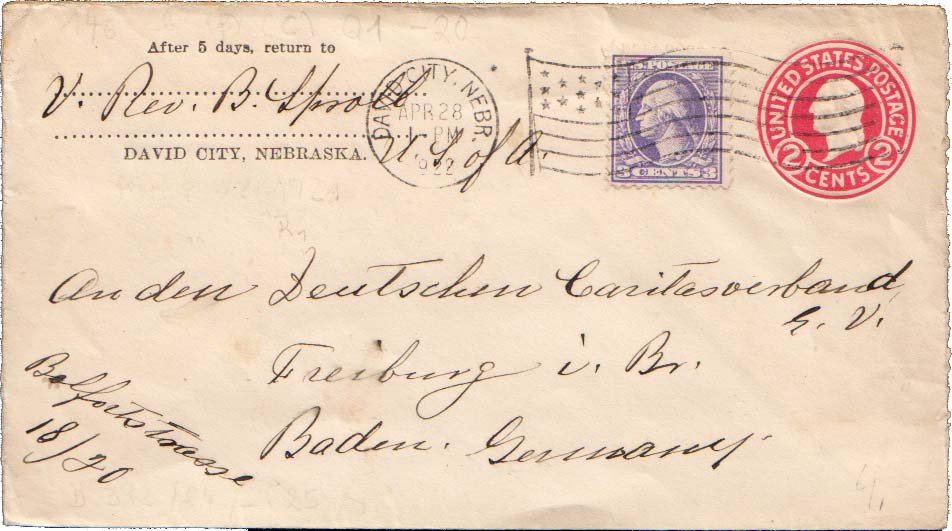 After 5 days, return to
V. Rev. B. Sproll
DAVID CITY, NEBRASKA.
U S of A.
DAVID CITY, NEBR.
APR 28
1 PM
1922
U.S. POSTAGE
3 CENTS 3
UNITED STATES POSTAGE
2 CENTS 2
An den Deutschen Caritasverband
E. V.
Freiburg i. Br.
Baden. Germany.
Belfortstrasse
18/20